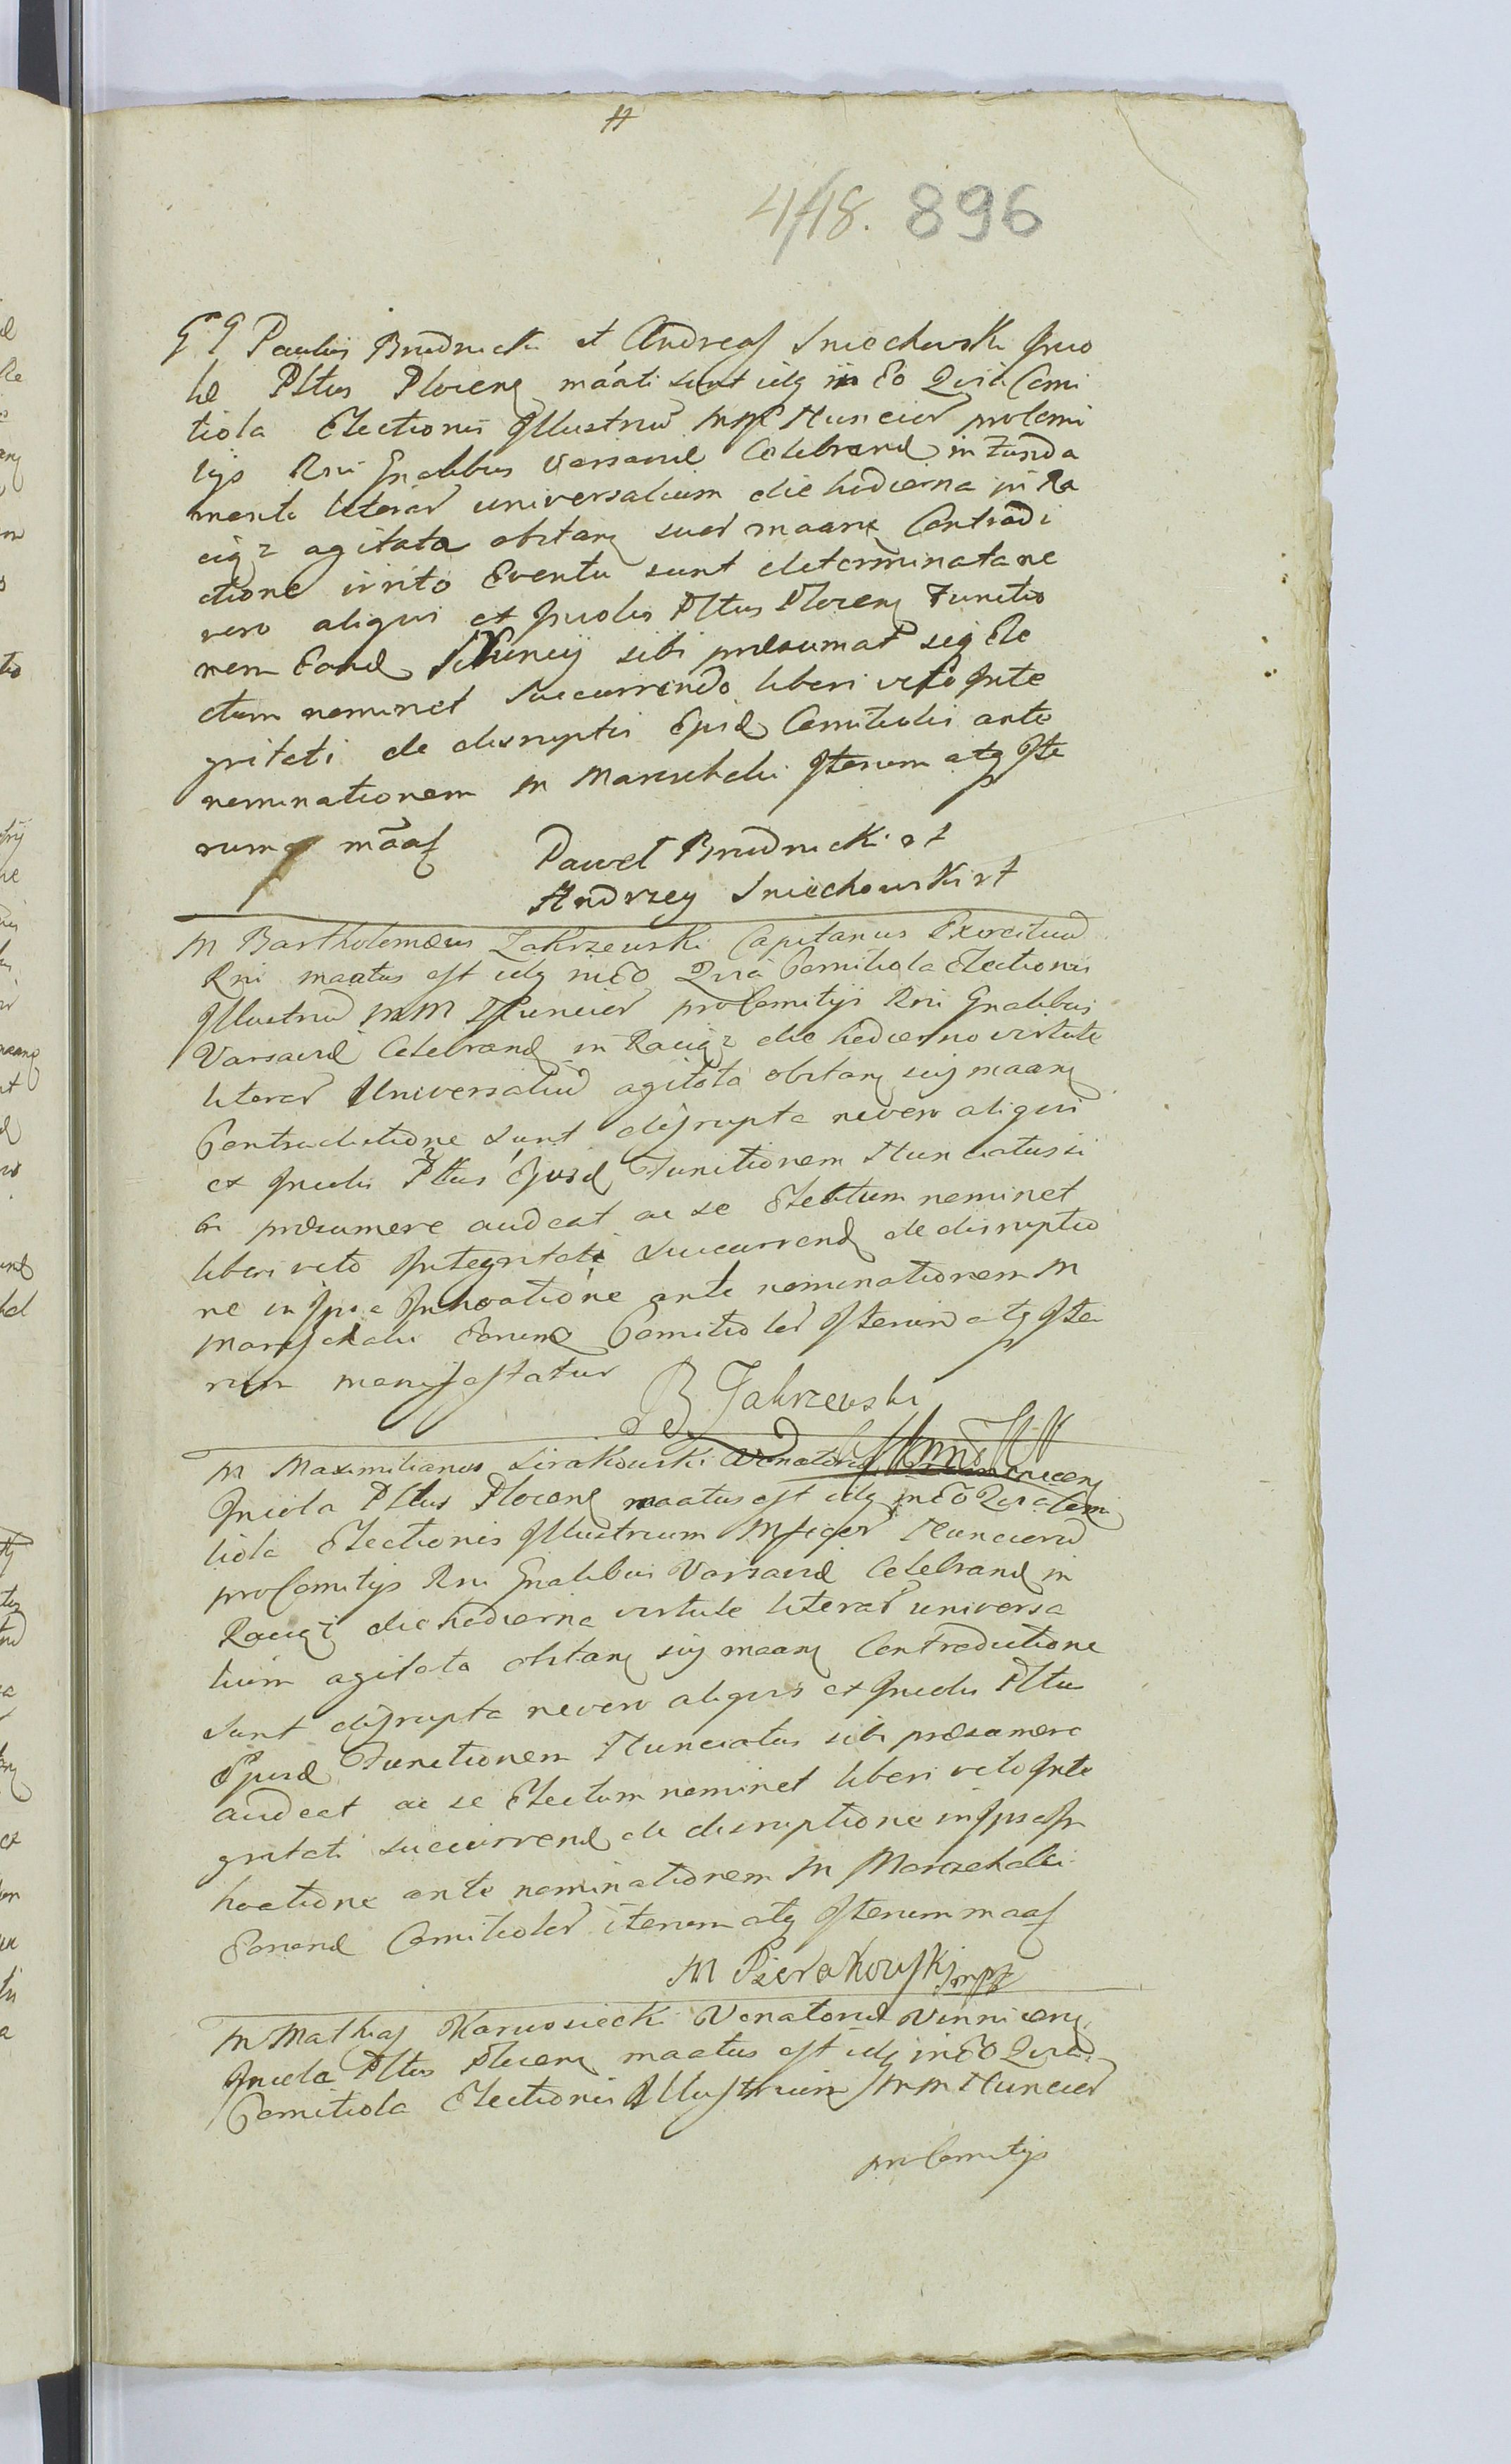 #
448. 896
G G Paulus Brudnicki et Andreas Sniechowski Inco
læ Pltus Plocens māāti sunt idq in Eo Quia Comi
tiola Electionis Illustriū MM Nuncior pro Comi
tijs Rni Gnalibus Varsaviæ Celebrand in Funda
mento literar universalium die hodierna in Ra
ciąz agitata obstan suar maāne Contradi
ctione irrito Eventu sunt determinata ne
vero aliquis ex Incolis Pltus Plocens Functio
nem Eand Nuncij sibi præsumat seq Ele
ctum nominet Succurrendo liberi veto Inte
gritati de disruptis Ejusd Comitiolis ante
nominationem M Mareschalci Iterum atq Ite
rumq māās
Paweł Brudnicki
Andrzey Sniechowski
M Bartholomæus Zakrzewski Capitanus Exercituū
Rni maatus est idq in Eo Quia Comitiola Electionis
Illustriū MM Nuncior pro Comitijs Rni Gnalibus
Varsaviæ Celebrand in Raciąz die hodierno virtute
literar Universaliū agitata obstan suj maane
Contradictione sunt disrupta ne vero aliquis
ex Incolis Pltus Ejusd Functionem Nunciatus si
bi præsumere audeat ac se Electum nominet
liberi veto Integritati Succurrend de disruptio
ne in Ipsa Inhoatione ante nominationem M
Marschalci Eorund Comitiolor Iterum atq Ite
rum manifestatur
B Zakrzewski
M Maximilianus Sirakowski Venatorid
Incola Pltus Plocens maatus est idq in Eo Quia Comi
tiola Electionis Illustrium Mficor Nunciorū
pro Comitijs Rni Gnalibus Varsaviæ Celebrand in
Raciąz die hodierna virtute literar universa
lium agitata obstan suj maane Contradictione
Sunt disrupta ne vero aliquis ex Incolis Pltus
Ejusd Functionem Nunciatus sibi præsumere
audeat ac se Electum nominet liberi veto Inte
gritati succurrend de disruptione in Ipsa In
hoatione ante nominationem M Marszchalci
Eorund Comitiolor iterum atq Iterum maas
M Sierakowski mpr
M Mathias Karwosiecki Venatorid Vinnicens
Incola Pltus Plocens maatus est idq in Eo Quia
Comitiola Electionis Illustrium MM Nuncior
pro Comitijs